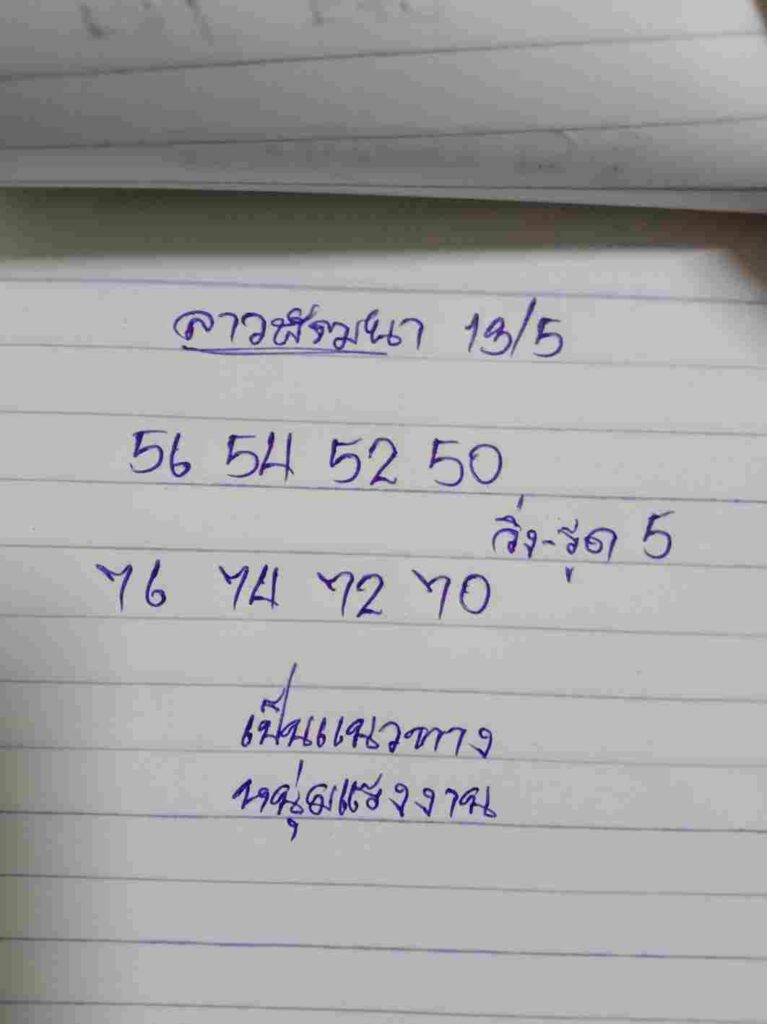 ลาวพัฒนา 13/5
56 54 52 50
วิ่ง-รูด 5
76 74 72 70
เป็นแนวทาง
หนุ่มแรงงาน